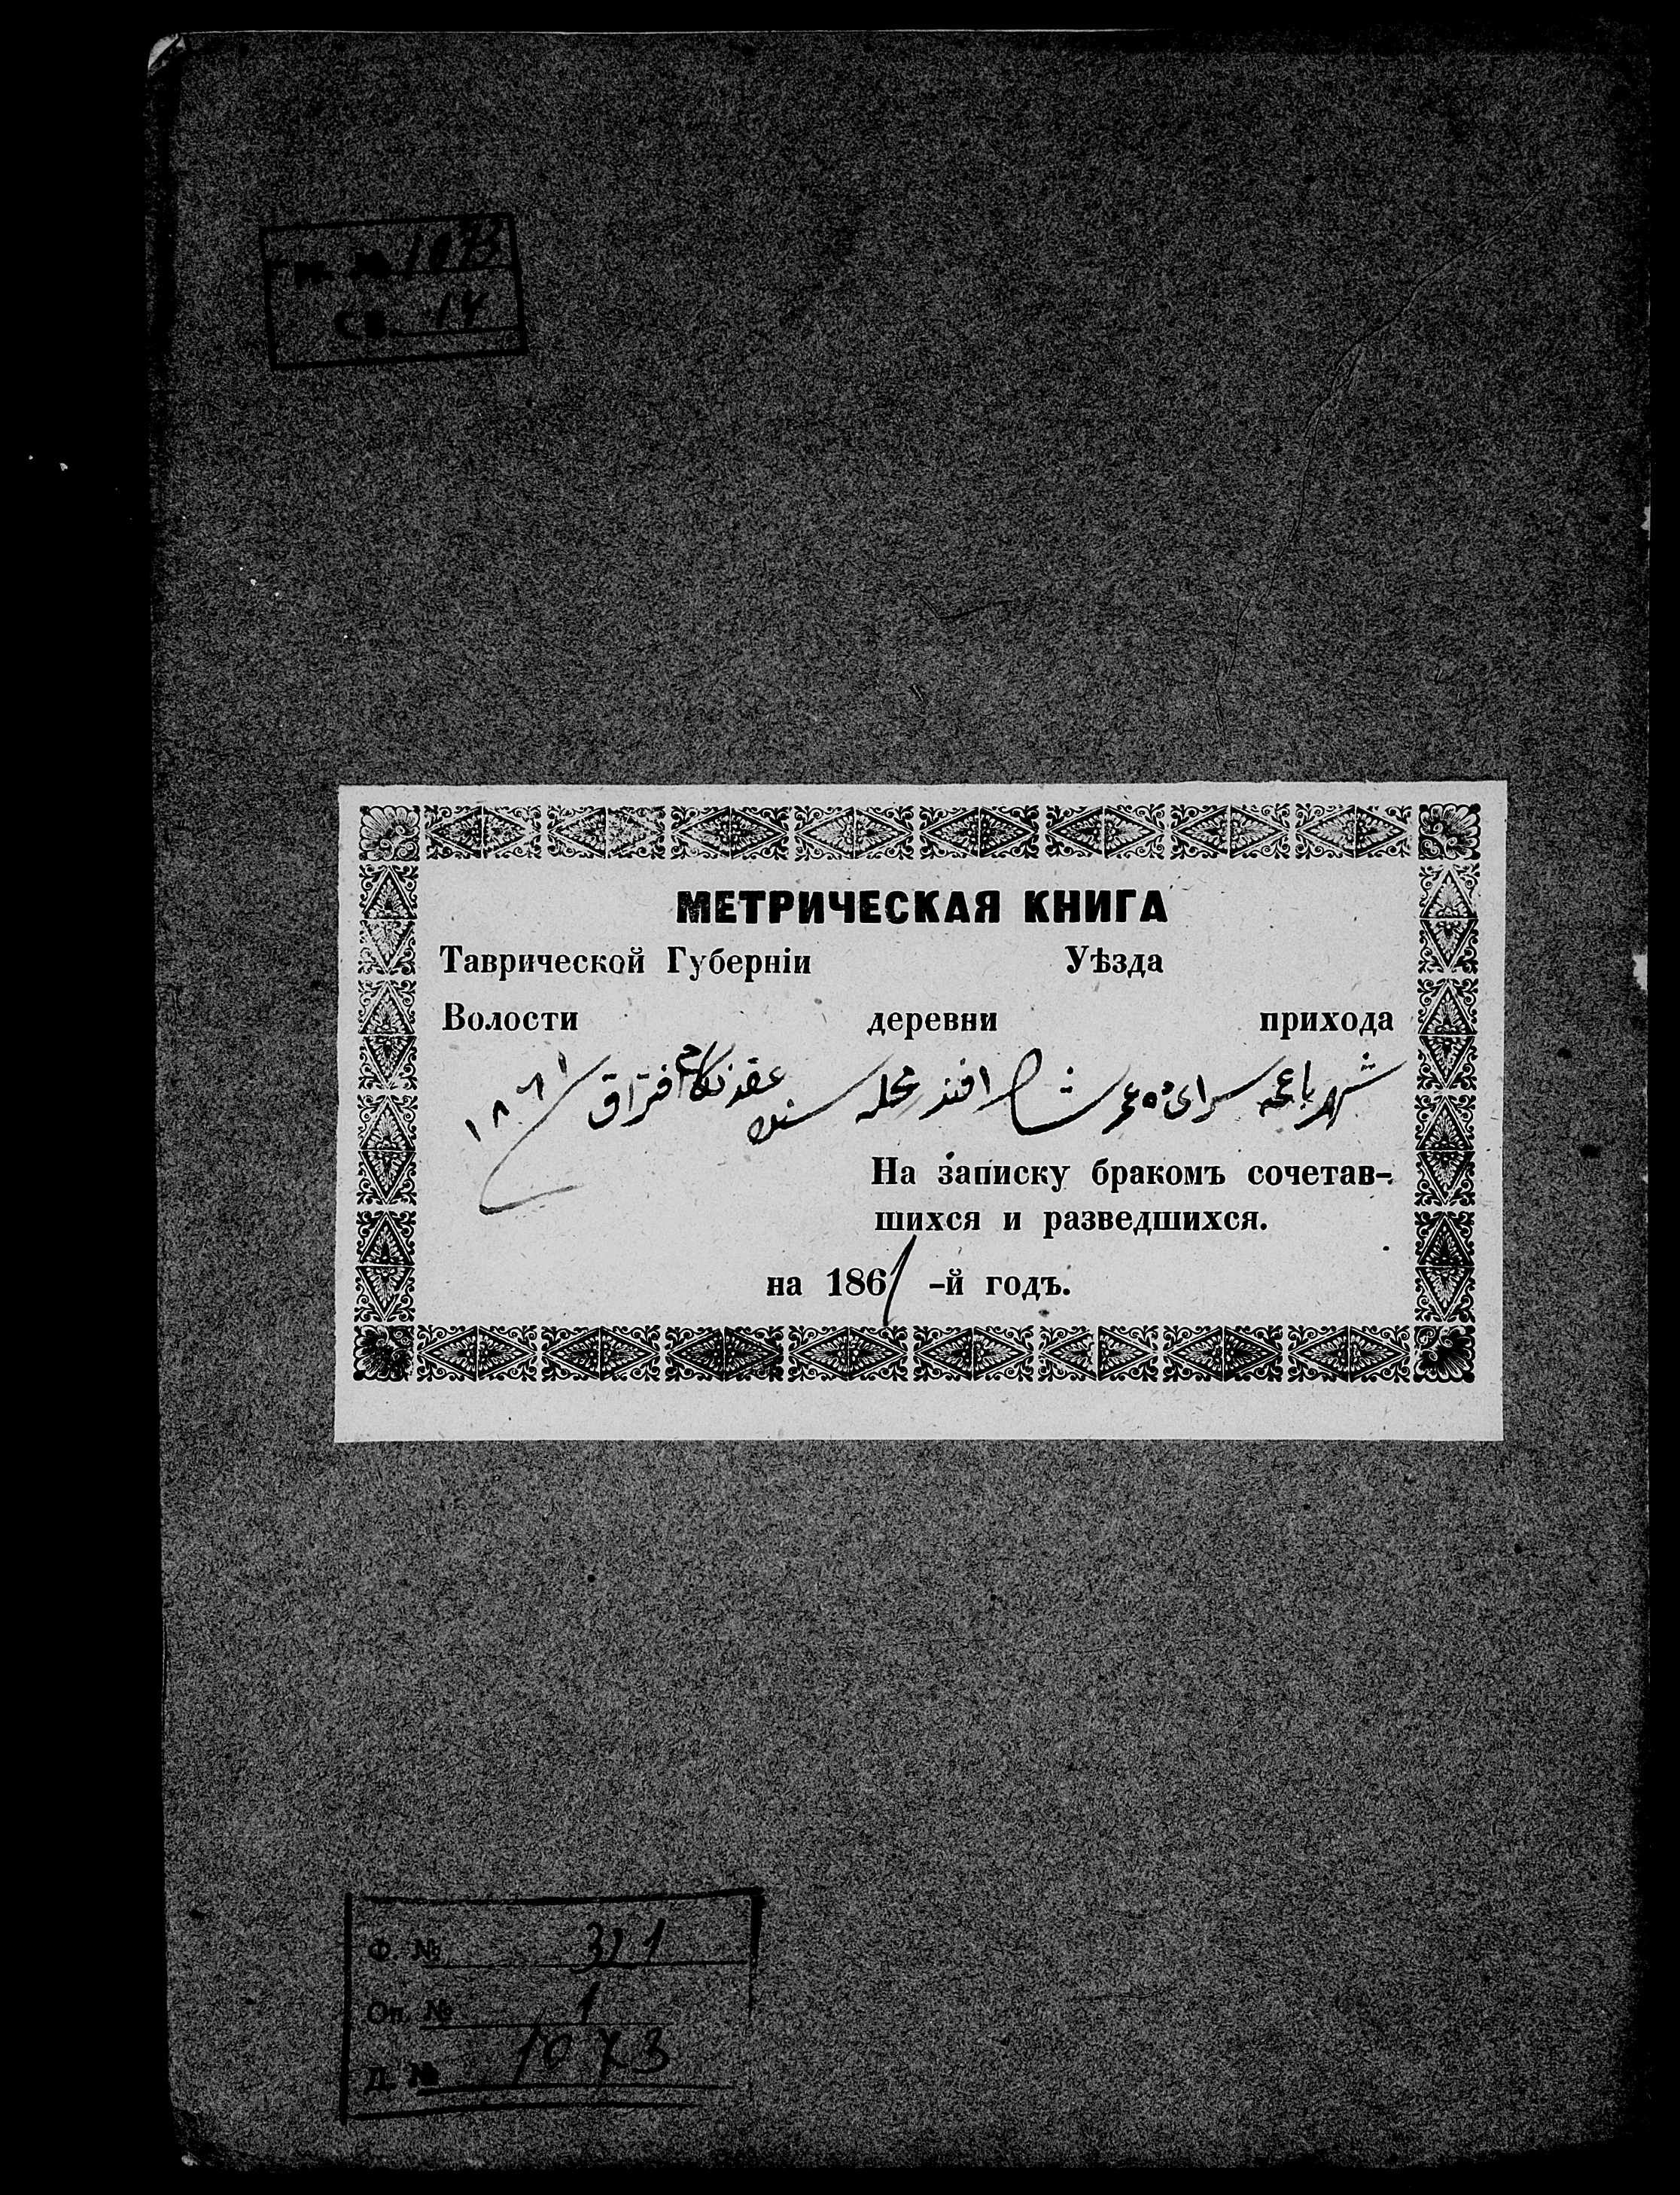 № 1073
Св. 14
МЕТРИЧЕСКАЯ КНИГА
Таврической Губерніи Уѣзда
Волости деревни прихода
شهر باغچه سرای ده عمر افندی محله سنده عقد نکاح افتراق ١٨٦١
На записку бракомъ сочетав-
шихся и разведшихся.
на 1861 -й годъ.
Ф. № 321
Оп. № 1
Д. № 1073